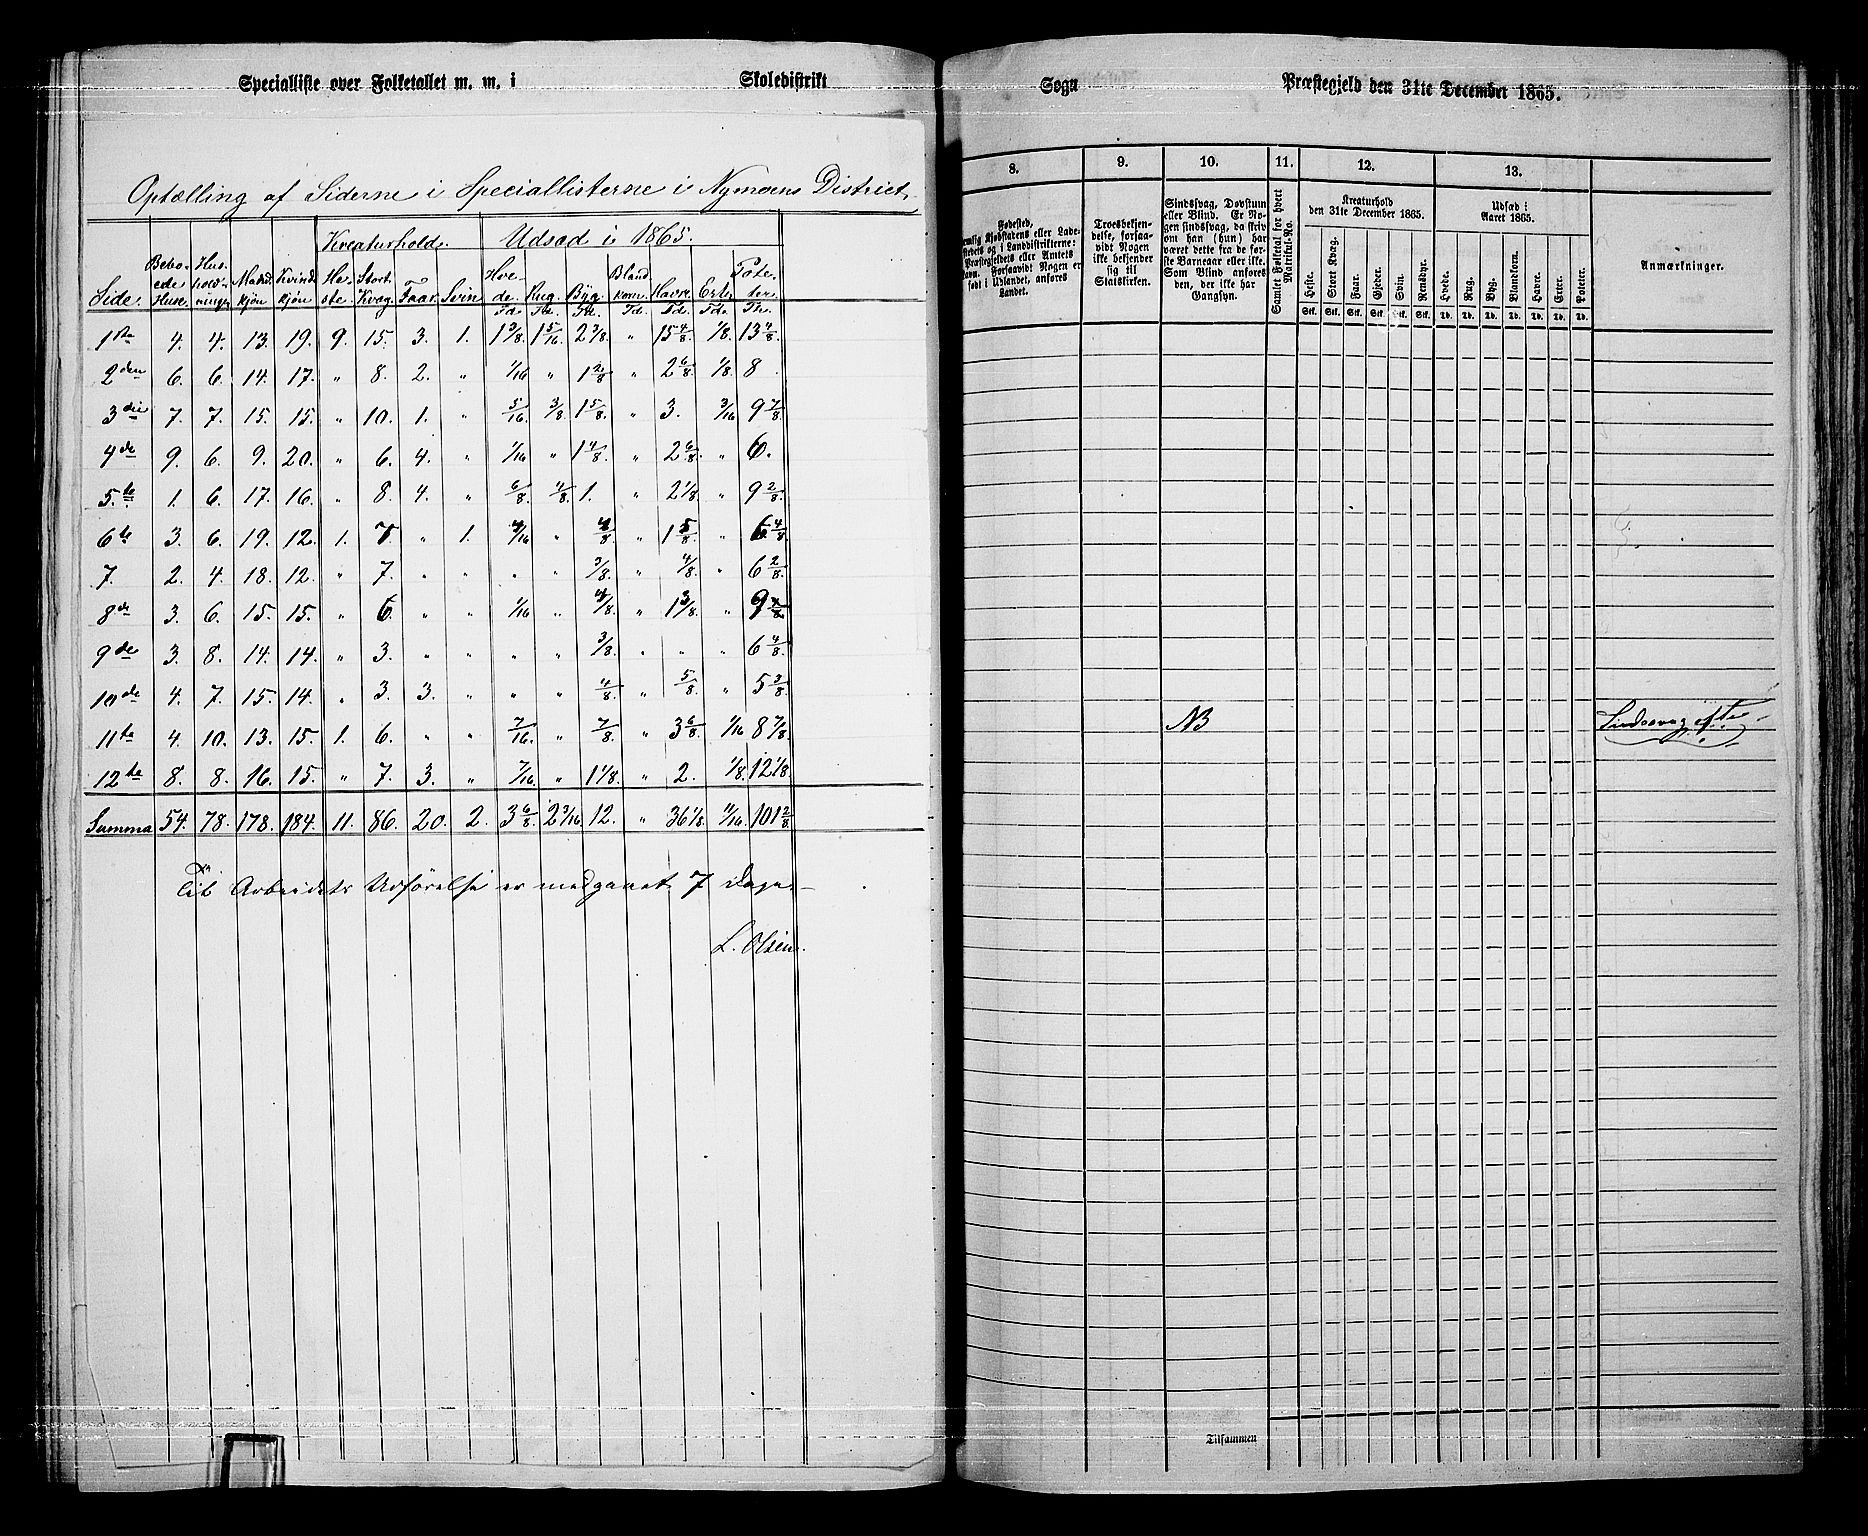 Specialliste over Folketallet m. m. i Skoledistrikt
Optælling af Siderne i Speciallisterne i Nymoens District.
Kreaturhold. Udsæd i 1865.
Side. Beboede Huse. Husholdninger Mandkjøn Kvindekjøn Heste. Stort Kvæg. Faar. Svin Hvede. Rug. Byg. Blandkorn. Havre. Erter Poteter.
Td. Td. Td. Td. Td. Td. Td.
1ste 4. 4. 13. 19. 9. 15. 3. 1. 1 3/8. 1 5/16. 2 3/8. " 15 4/8. 1/8. 13 4/8
2den 6. 6. 14. 17. " 8. 2. " 1/16 " 1 2/8 " 2 6/8. 1/8. 8.
3die 7. 7. 15. 15. " 10. 1. " 5/16. 3/8. 1 5/8. " 3. 3/16 9 7/8.
4de 9. 6. 9. 20. " 6. 4. " 1/16 " 1 4/8. " 2 6/8. " 6.
5te 1. 6. 17. 16. " 8. 4. " 6/8. 4/8. 1. " 2 1/8. " 9 2/8.
6te 3. 6. 19. 12. 1. 7. " 1. 4/16. " 4/8. " 1 5/8. " 6 4/8.
7. 2. 4. 18. 12. " 7. " " " " 3/8. " 4/8. " 6 2/8.
8de 3. 6. 15. 15. " 6. " " 1/16 " 4/8. " 1 3/8. " 9 2/8.
9de 3. 8. 14. 14. " 3. " " " " 3/8. " " " 6 4/8.
10de 4. 7. 15. 14. " 3. 3. " " " 4/8. " 5/8. " 5 3/8.
11te 4. 10. 13. 15. 1. 6. " " 7/16. " 7/8. " 3 6/8. 1/16 8 7/8.
12te 8. 8. 16. 15. " 7. 3. " 7/16. " 1 1/8. " 2. 1/8. 12 1/8.
Summa 54. 78. 178. 184. 11. 86. 20. 2. 3 6/8. 2 3/16. 12. " 36 1/8. 11/16. 101 2/8
Til Arbeidets Udførelse er medgaaet 7 Dage.
L. Olsen.
Sogn Præstegjeld den 31te December 1865.
8. 9. 10. 11. 12. 13.
Fødested,
Kjøbstadens eller Lade-
stedets og i Landdistrikterne:
Præstegjeldets eller Amtets
Navn. Forsaavidt Nogen er
født i Udlandet, anføres
Landet.
Troesbekjen-
delse, forsaa-
vidt Nogen
ikke bekjender
sig til
Statskirken.
Sindssvag, Døvstum
eller Blind. Er No-
gen sindssvag, da skriv
om han (hun) har
været dette fra de før-
ste Barneaar eller ikke.
Som Blind anføres
den, der ikke har
Gangsyn.
Samlet Folketal for hvert Matrikul-No.
Kreaturhold
den 31te December 1865.
Heste. Stort Kvæg. Faar. Gjeder. Svin. Rensdyr.
Stk. Stk. Stk. Stk. Stk. Stk.
Udsæd i
Aaret 1865.
Hvede. Rug. Byg. Blandkorn. Havre. Erter. Poteter.
Td. Td. Td. Td. Td. Td. Td.
Anmærkninger.
NB
Tilsammen